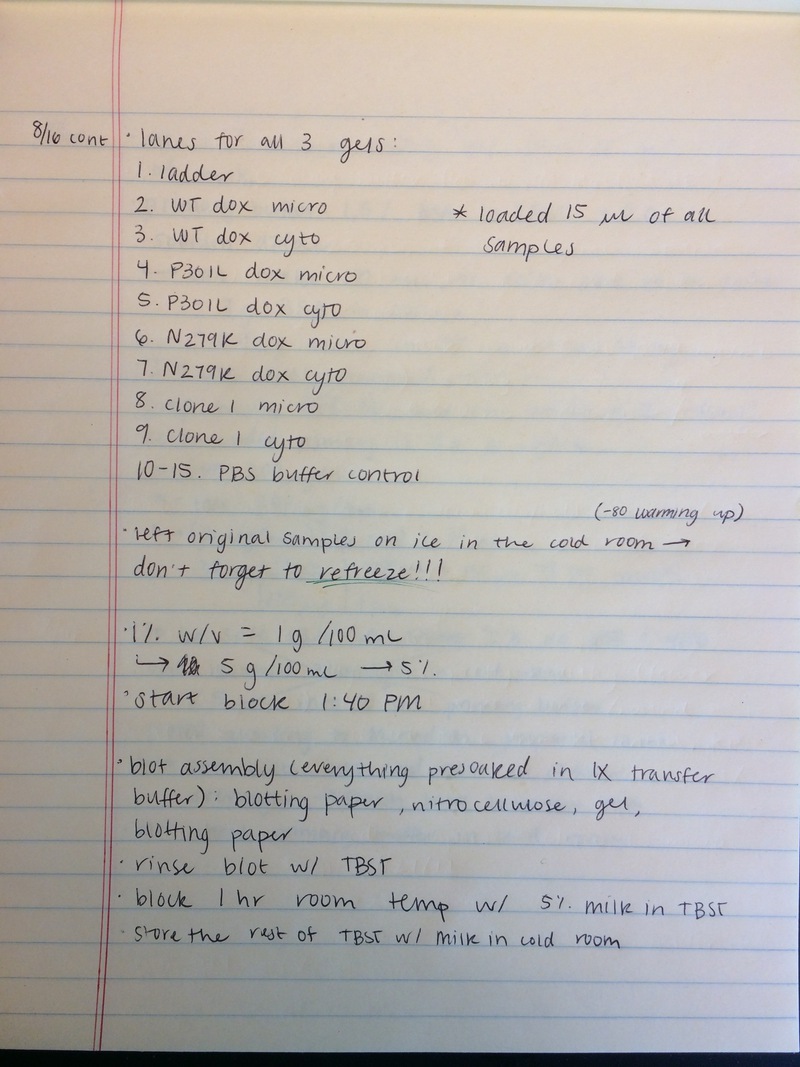 8/16 cont · lanes for all 3 gels:
1. ladder
2. WT dox micro
* loaded 15 µl of all
3. WT dox cyto
samples
4. P301L dox micro
5. P301L dox cyto
6. N279K dox micro
7. N279K dox cyto
8. clone 1 micro
9. clone 1 cyto
10-15. PBS buffer control
(-80 warming up)
· left original samples on ice in the cold room →
don't forget to refreeze!!!
· 1% w/v = 1 g /100 mL
↳ 5 g/100 mL → 5%
· start block 1:40 PM
· blot assembly (everything presoaked in 1X transfer
buffer): blotting paper, nitrocellulose, gel,
blotting paper
· rinse blot w/ TBST
· block 1 hr room temp w/ 5% milk in TBST
· store the rest of TBST w/ milk in cold room